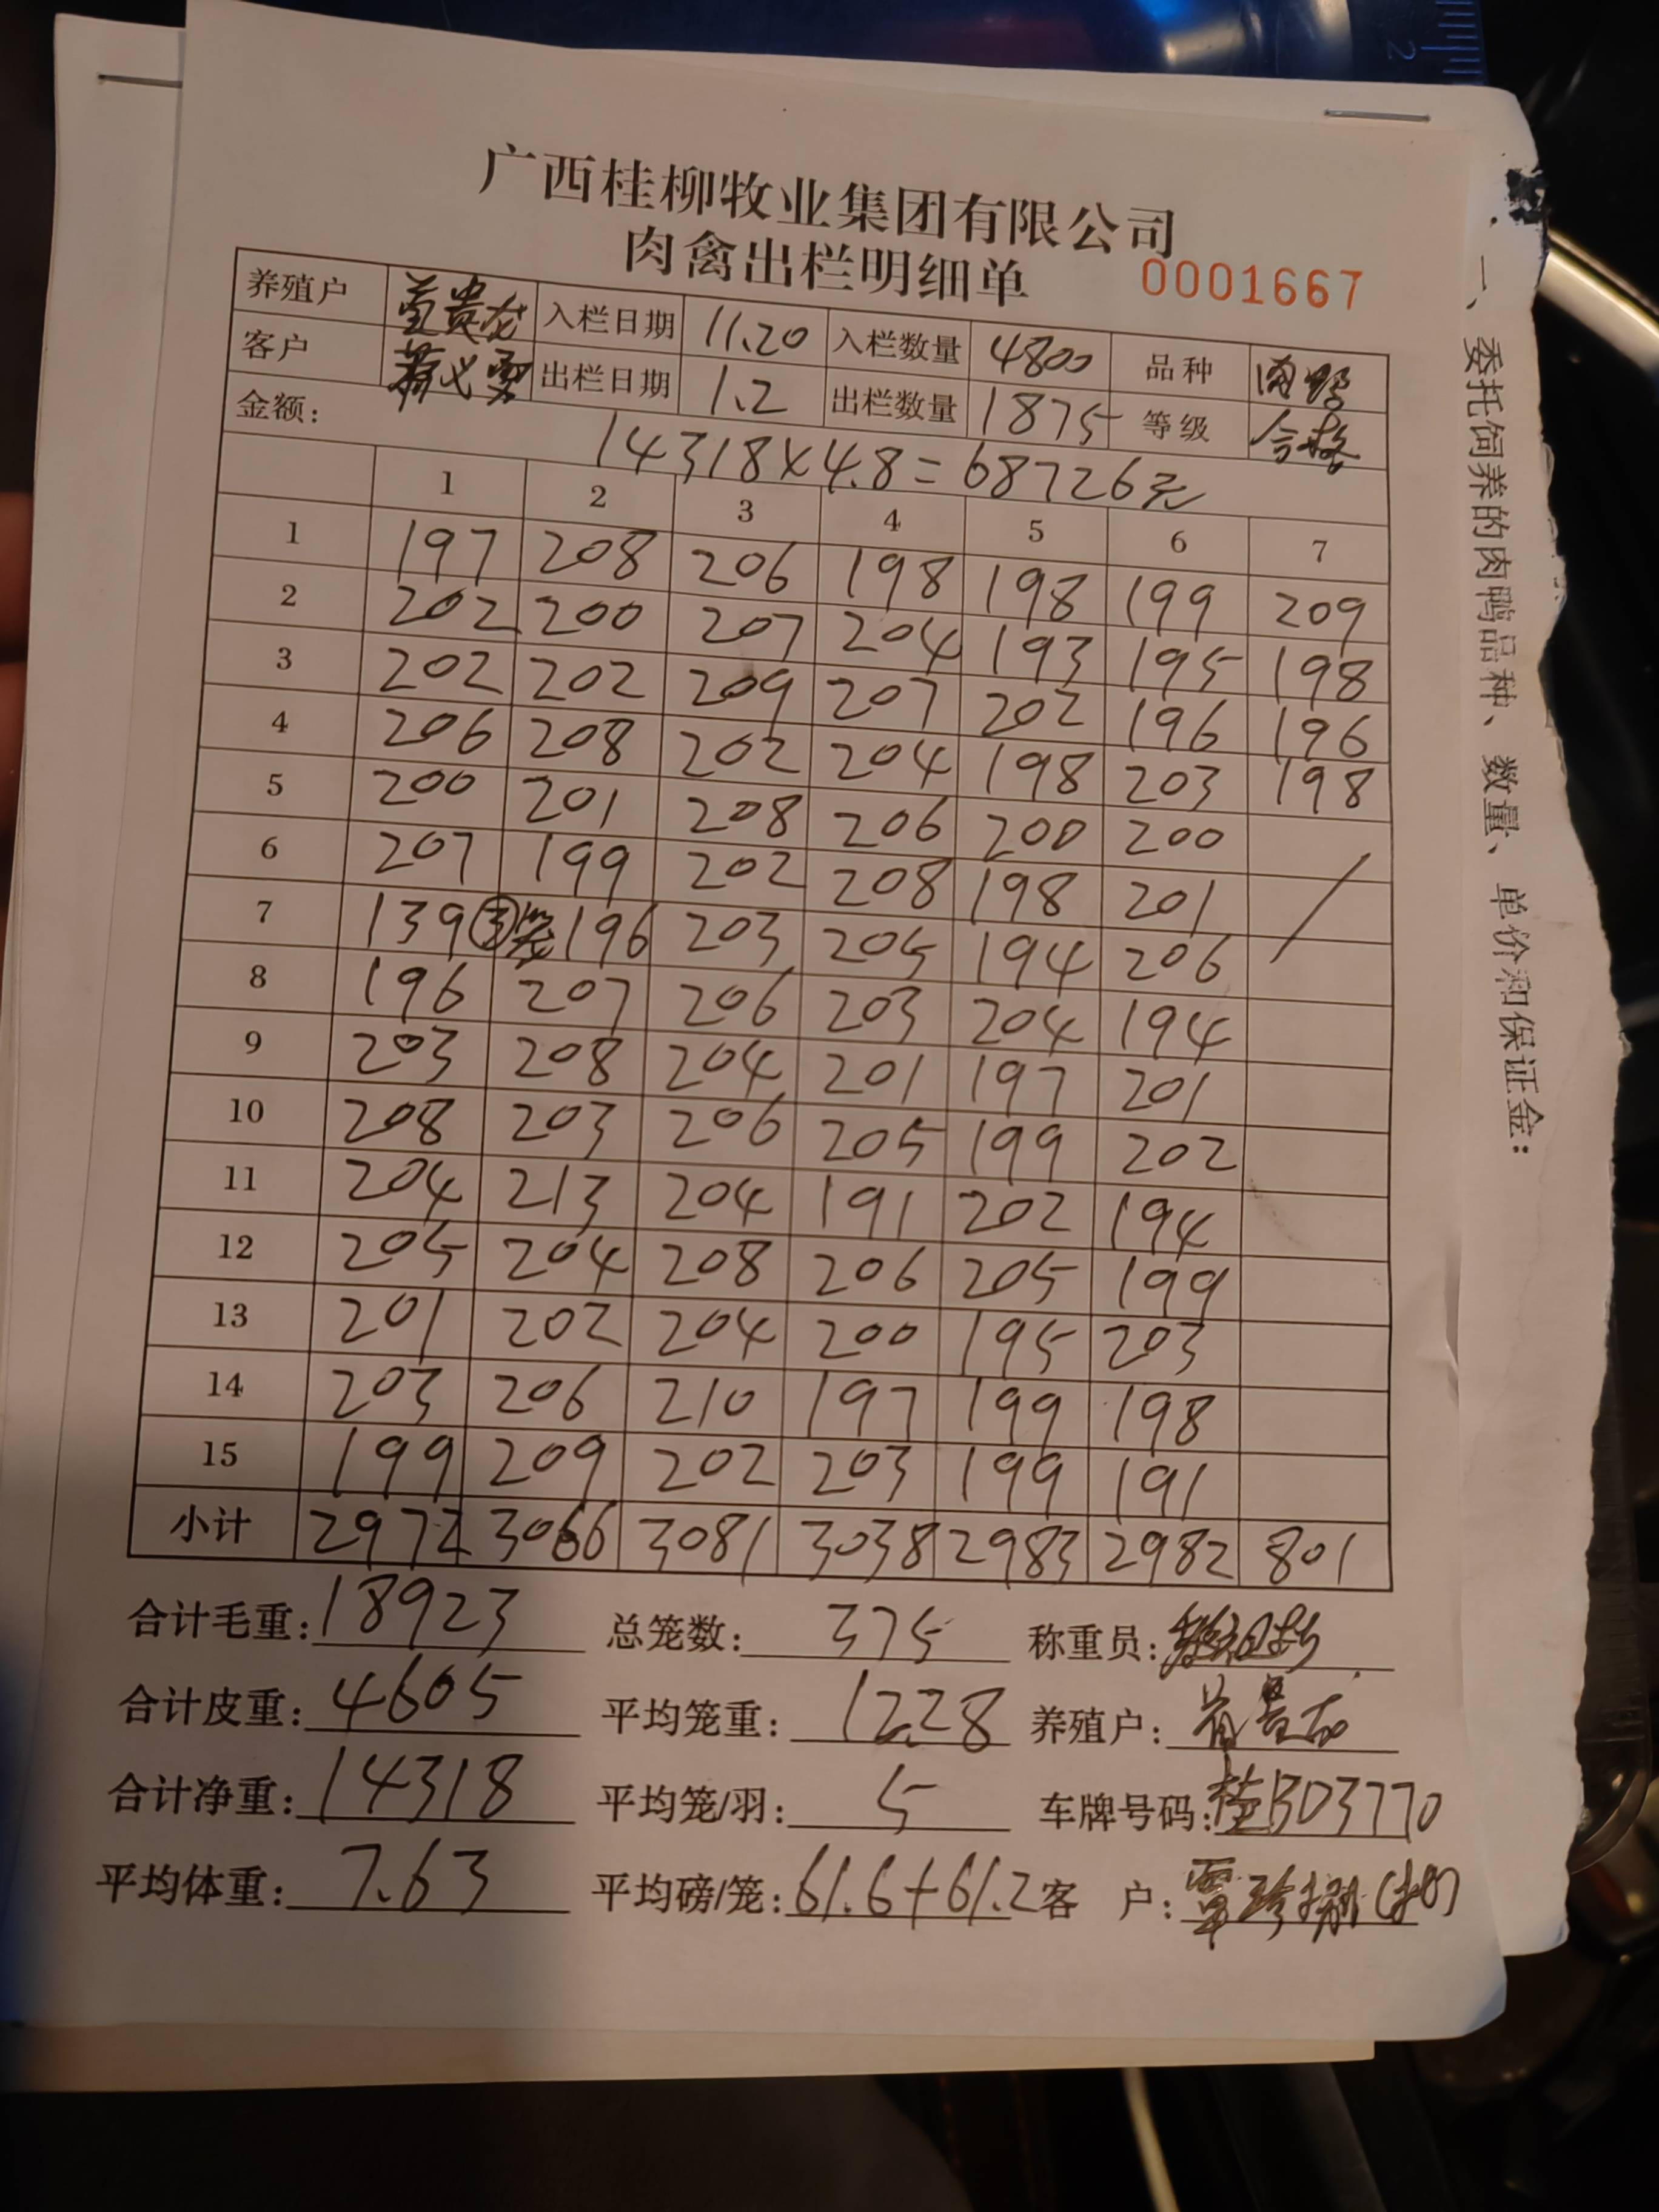 广西桂柳牧业集团有限公司
肉禽出栏明细单 0001667
养殖户 入栏日期 11.20 入栏数量 4800 品种
客户 出栏日期 1.2 出栏数量 1875 等级 合格
金额: 14318×4.8=68726元
1 2 3 4 5 6 7
1 197 208 206 198 198 199 209
2 202 200 207 204 193 195 198
3 202 202 209 207 202 196 196
4 206 208 202 204 198 203 198
5 200 201 208 206 200 200
6 207 199 202 208 198 201
7 139 ③笼 196 203 205 194 206
8 196 207 206 203 204 194
9 203 208 204 201 197 201
10 208 203 206 205 199 202
11 204 213 204 191 202 194
12 205 204 208 206 205 199
13 201 202 204 200 195 203
14 203 206 210 197 199 198
15 199 209 202 203 199 191
小计 2972 3066 3081 3038 2983 2982 801
合计毛重: 18923 总笼数: 375 称重员:
合计皮重: 4605 平均笼重: 12.28 养殖户:
合计净重: 14318 平均笼/羽: 5 车牌号码: 桂BD3770
平均体重: 7.63 平均磅/笼: 61.6+61.2 客 户:
一、委托饲养的肉鸭品种、数量、单价和保证金:
2